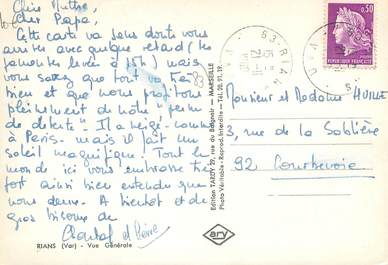 Chère Mutter,
Cher Papa,
Cette carte va sans doute vous
arriver avec quelque retard (les
levée à 15h) mais vous
savez que tout va très
bien et que nous profitons
pleinement de notre "semaine
de détente". Il a neigé - comme
à Paris - mais il fait un
soleil magnifique. Tout le
monde ici vous embrasse très
fort ainsi bien entendu que
nous deux. A bientôt et de
gros bisous de
Chantal et Pierre
RIANS (Var) - Vue Générale
Edition TARDY, 99, rue du Baignoir - MARSEILLE
Photo Véritable - Reprod. Interdite - Tél. 20.91.19
ary
83 RIANS
VAR
0,50
REPUBLIQUE FRANÇAISE
Monsieur et Madame HUILLE
3, rue de la Sablière
92 Courbevoie